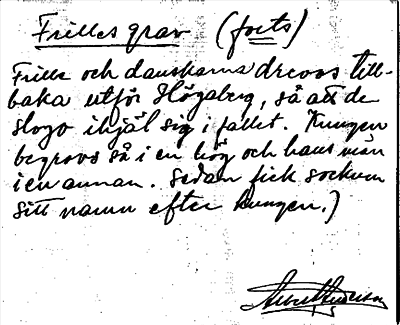 Frilles grav (forts)
Frille och danskarna drevos till-
baka utför Högaberg, så att de
slogo ihjäl sig i fallet. Kungen
begrovs så i en hög och hans män
i en annan. Sedan fick socknen
sitt namn efter kungen.)